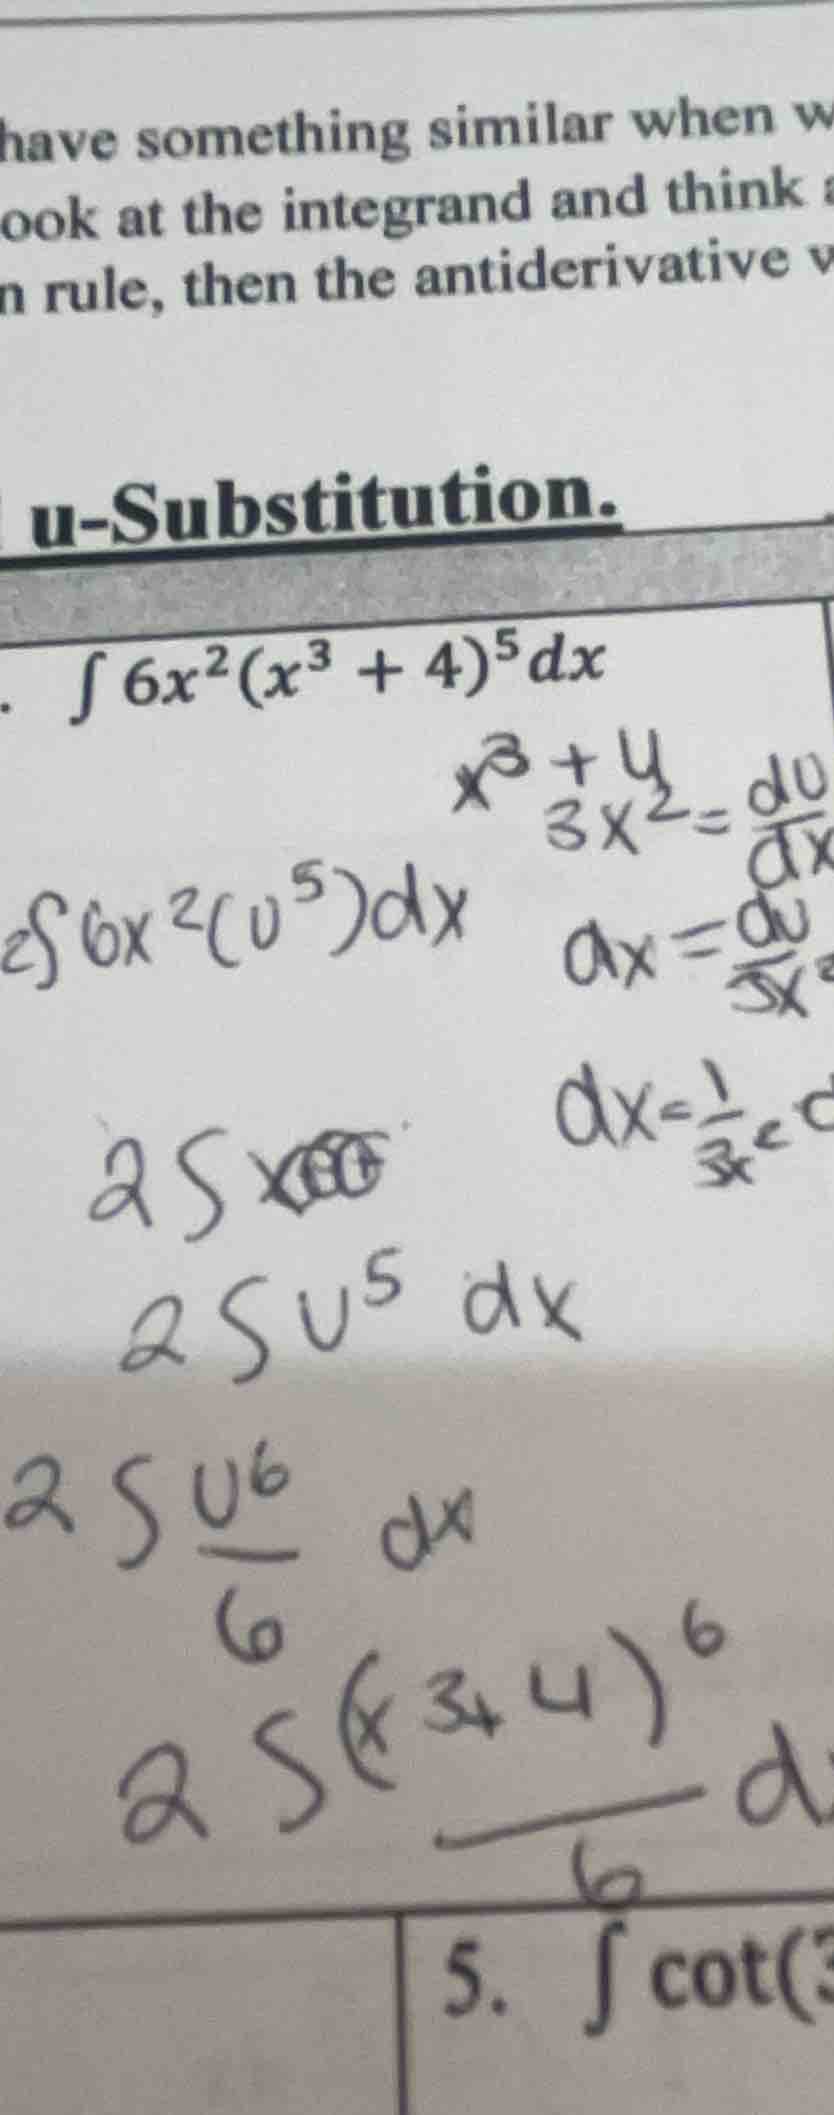 have something similar when w
ook at the integrand and think a
n rule, then the antiderivative w
u-Substitution.
. ∫ 6x²(x³ + 4)⁵dx
x³ + 4
3x² = du/dx
2∫6x²(u⁵)dx
dx = du/3x²
dx = 1/3x²
2∫x
2∫u⁵ dx
2∫u⁶/6 dx
2∫(x³+4)⁶/6 d
5. ∫ cot(3